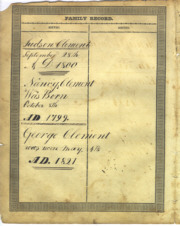 FAMILY RECORD.
Judson Clement
September 28th
AD 1800
Nancy Clement
Was Born
October 8th
AD 1799
George Clement
was born May 4th
AD. 1821